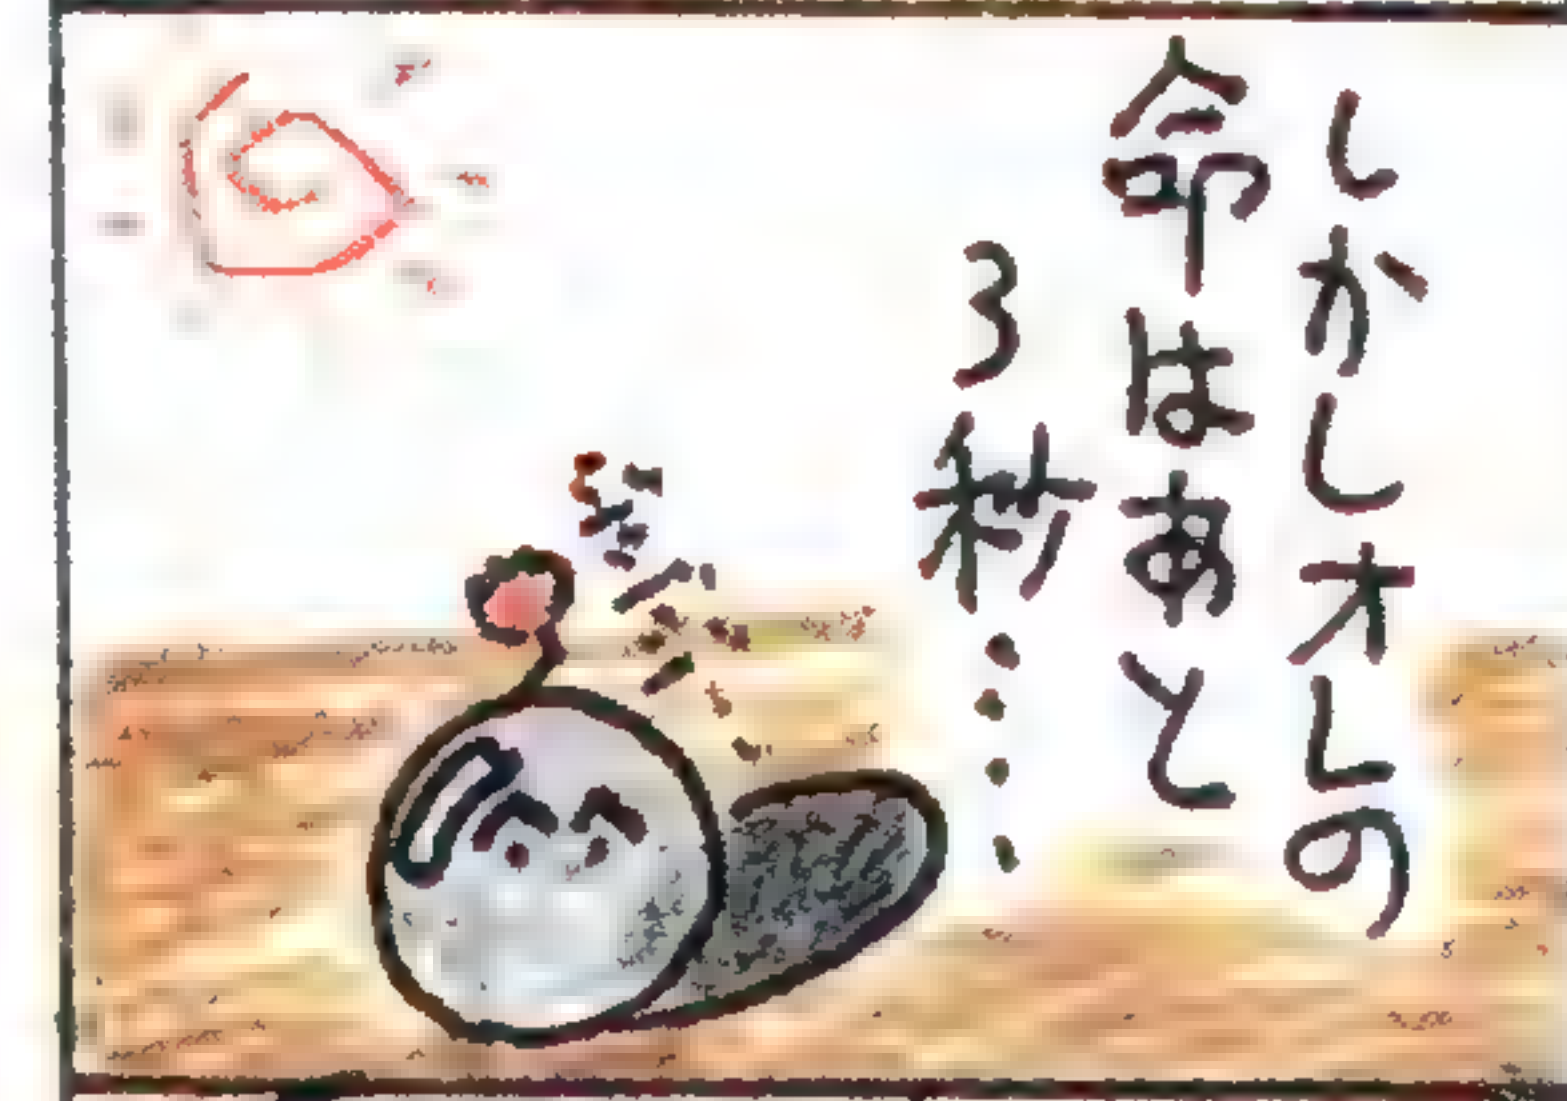 しかしオレの
命はあと
3秒・・・・